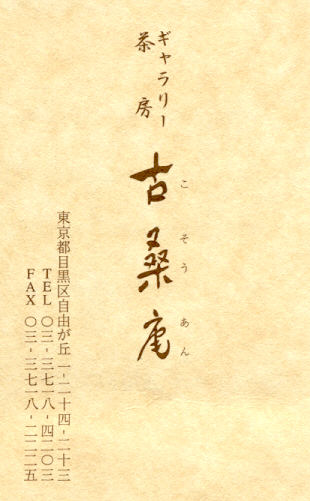 ギャラリー
茶房
古桑庵
こそうあん
東京都目黒区自由が丘一-二十四-二十三
TEL 〇三-三七一八-四二〇三
FAX 〇三-三七一八-二二二五